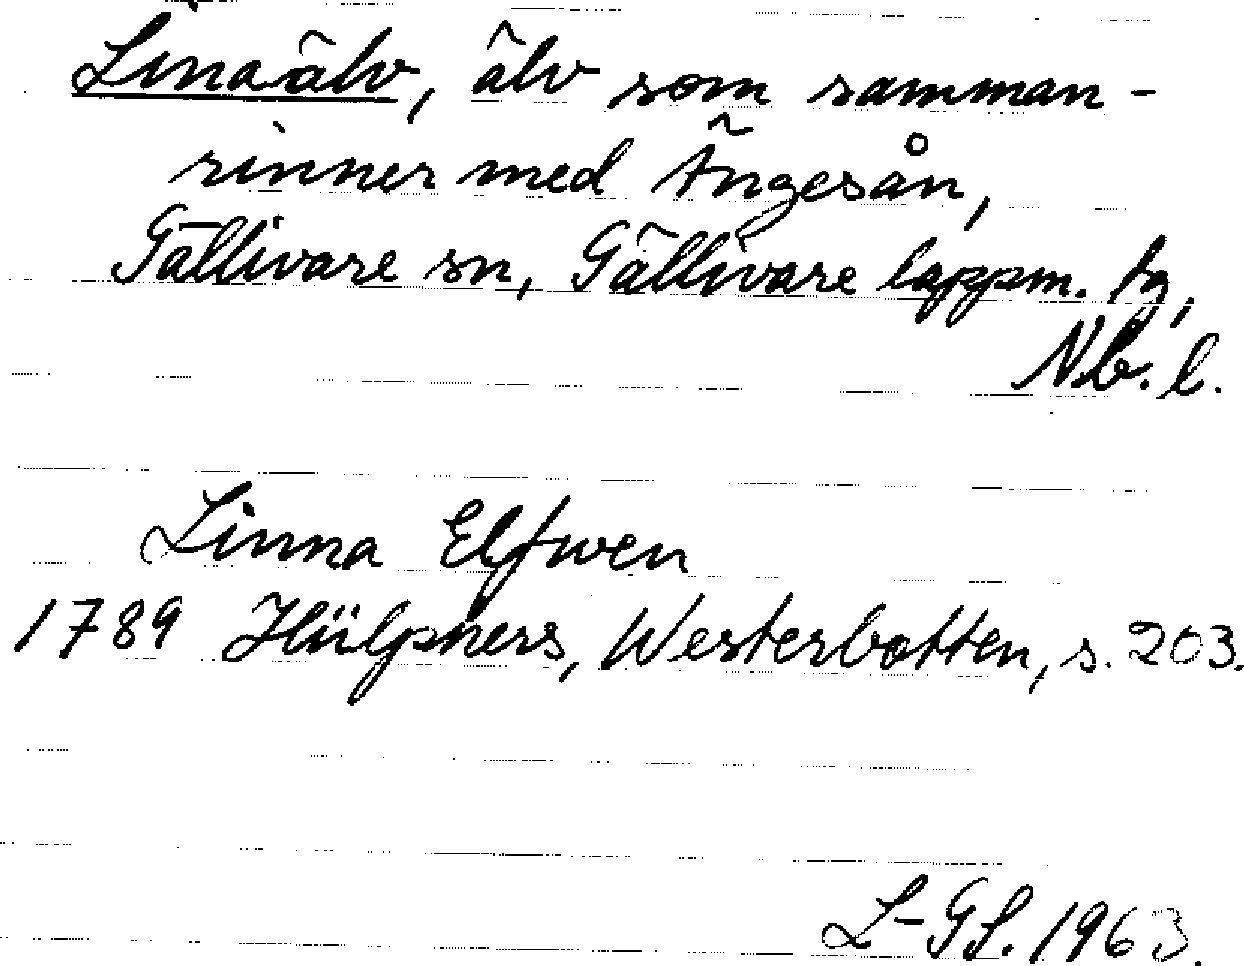 Linaälv, älv som samman-
rinner med Ängesån,
Gällivare sn, Gällivare lappm. tg,
Nb. l.
Linna Elfwen
1789 Hülphers, Westerbotten, s. 203.
L-GL. 1963.